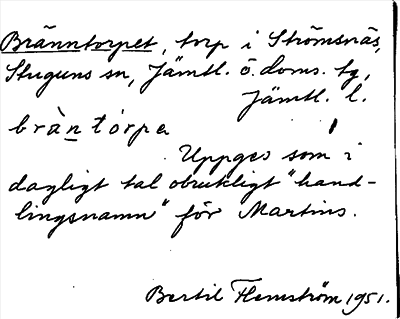 Bränntorpet, torp i Strömsnäs,
Stuguns sn, Jämtl. ö. doms. tg,
Jämtl. l.
bràntórpe
Uppges som i
dagligt tal obrukligt "hand-
lingsnamn" för Martins.
Bertil Flemström 1951.